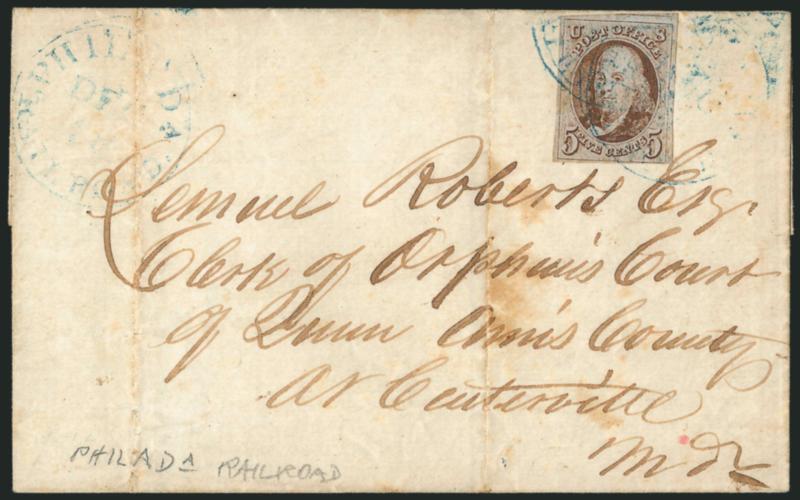 U S
POST OFFICE
5 FIVE CENTS 5
Lemuel Roberts Esq.
Clerk of Orphan's Court
of Queen Ann's County
At Centerville
Md
PHILADA RAILROAD